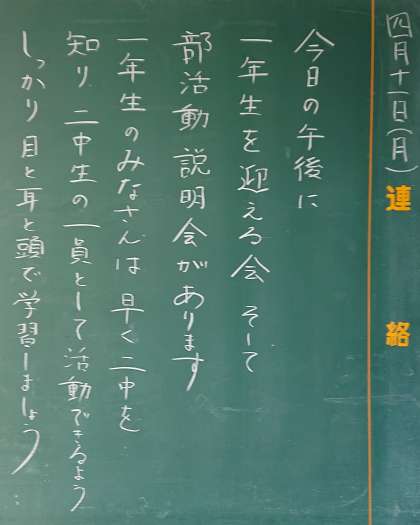 四月十一日(月)
連絡
今日の午後に
一年生を迎える会 そして
部活動 説明会があります
一年生のみなさんは 早く二中を
知り 二中生の一員として活動できるよう
しっかり 目と耳と頭で学習しましょう